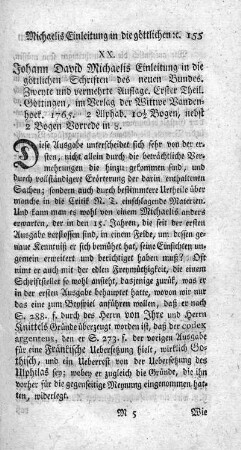 Michaelis Einleitung in die göttlichen ꝛc. 155
XX.
Johann David Michaelis Einleitung in die
göttlichen Schriften des neuen Bundes.
Zweyte und vermehrte Auflage. Erster Theil.
Göttingen, im Verlag der Wittwe Vanden-
hoek. 1765. 2 Alphab. 10½ Bogen, nebst
2 Bogen Vorrede in 8.
Diese Ausgabe unterscheidet sich sehr von der er-
sten, nicht allein durch die beträchtliche Ver-
mehrungen die hinzu gekommen sind, und
durch vollständigere Erörterung der darin enthaltenen
Sachen; sondern auch durch bestimmtere Urtheile über
manche in die Critik N. T. einschlagende Materien.
Und kann man es wohl von einem Michaelis anders
erwarten, der in den 15. Jahren, die seit der ersten
Ausgabe verflossen sind, in einem Felde, um dessen ge-
naue Kenntniß er sich bemühet hat, seine Einsichten un-
gemein erweitert und berichtiget haben muß? Oft
nimt er auch mit der edlen Freymüthigkeit, die einem
Schriftsteller so wohl ansteht, dasjenige zurük, was er
in der ersten Ausgabe behauptet hatte, wovon wir nur
das eine zum Beyspiel anführen wollen, daß er nach
S. 288. f. durch des Herrn von Ihre und Herrn
Knittels Gründe überzeugt worden ist, daß der codex
argenteus, den er S. 273. f. der vorigen Ausgabe
für eine Fränkische Uebersetzung hielt, wirklich Go-
thisch, und ein Ueberrest von der Uebersetzung des
Ulphilas sey; wobey er zugleich die Gründe, die ihn
vorher für die gegenseitige Meynung eingenommen hat-
ten, widerlegt.
M 5 Wie